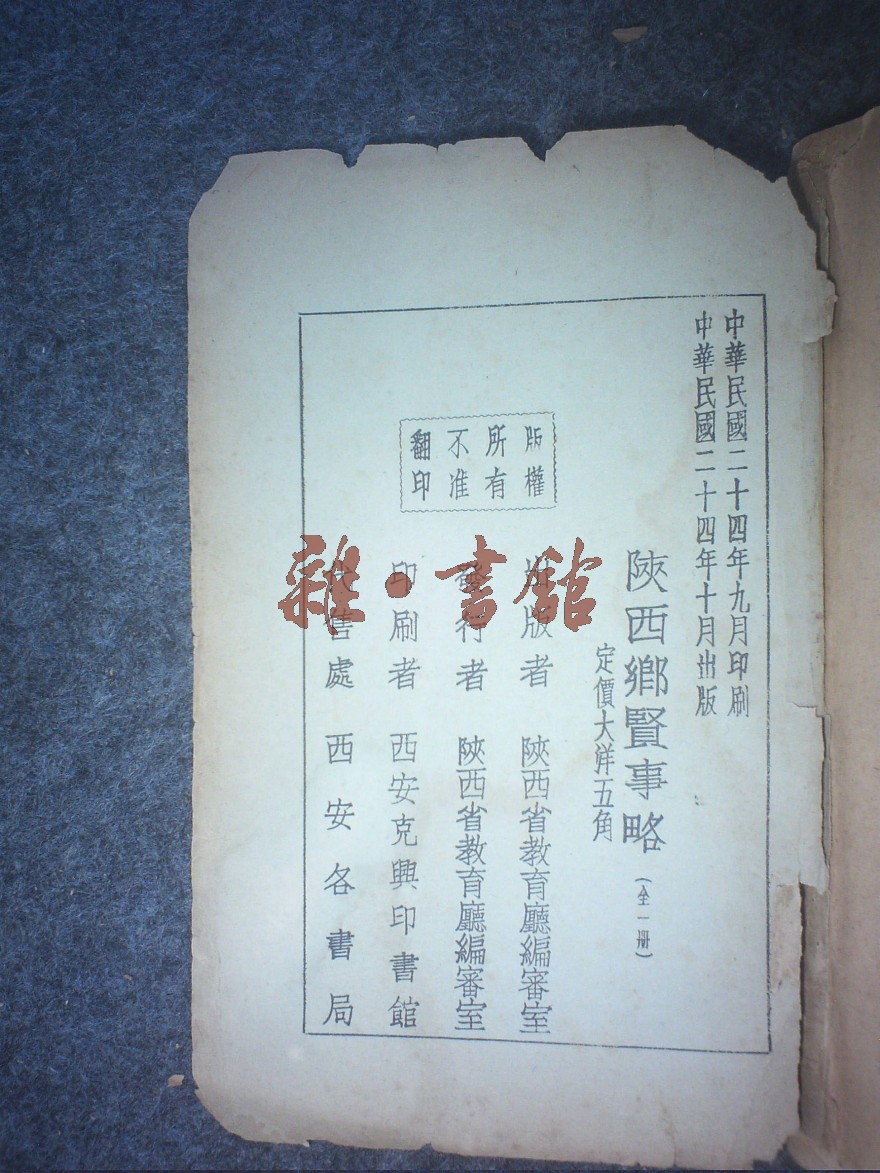 中華民國二十四年九月印刷
中華民國二十四年十月出版
陝西鄉賢事略（全一冊）
定價大洋五角
版權
所有
不准
翻印
出版者 陝西省教育廳編審室
發行者 陝西省教育廳編審室
印刷者 西安克興印書館
售處 西安各書局
雜·書館